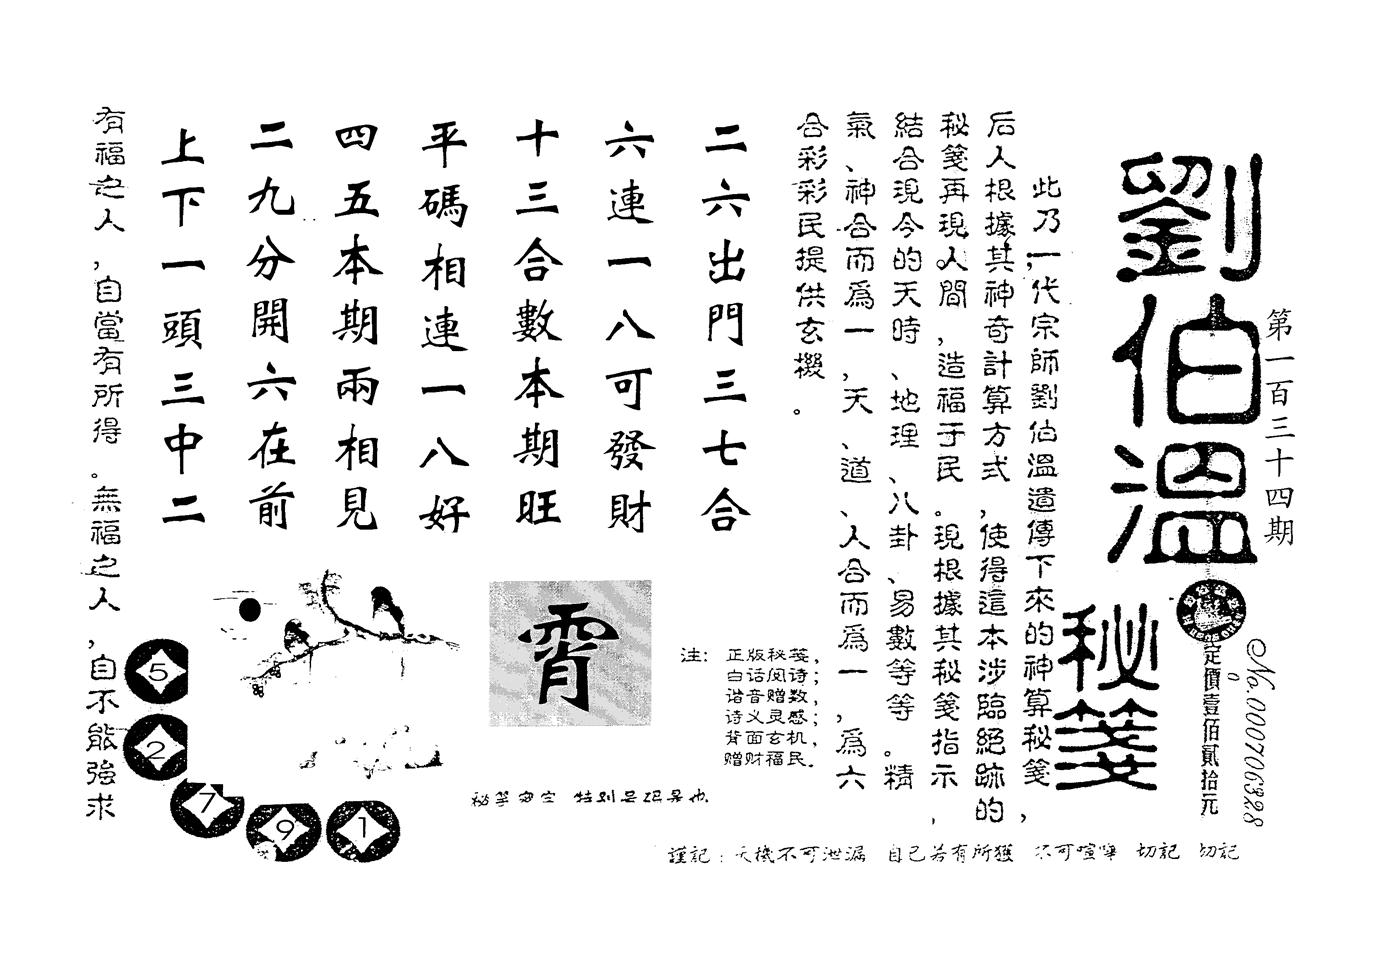 第一百三十四期
劉伯溫
秘箋
定價壹佰貳拾元
No.000706328
此乃一代宗師劉伯溫遺傳下來的神算秘箋，
后人根據其神奇計算方式，使得這本涉臨絕跡的
秘箋再現人間，造福于民。現根據其秘箋指示，
結合現今的天時、地理、八卦、易數等等。精、
氣、神合而爲一，天、道、人合而爲一，爲六
合彩彩民提供玄機。
二六出門三七合
六連一八可發財
十三合數本期旺
平碼相連一八好
四五本期兩相見
二九分開六在前
上下一頭三中二
有福之人，自當有所得。無福之人，自不能強求
霄
注：正版秘笺，
白话阅诗；
谐音赠数，
诗义灵感；
背面玄机，
赠财福民。
5
2
7
9
1
謹記：天機不可泄漏 自己若有所獲 不可喧嘩 切記 切記